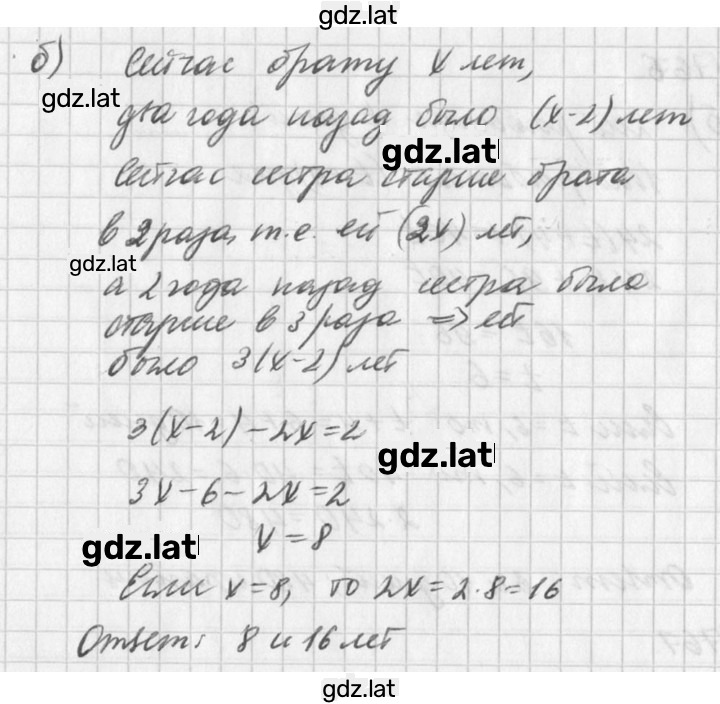 gdz.latl
б) Сейчас брату x лет,
gdz.latl
два года назад было (x-2) лет
gdz.latl
Сейчас сестра старше брата
в 2 раза, т.е. ей (2x) лет,
gdz.latl
а 2 года назад сестра была
старше в 3 раза => ей
было 3(x-2) лет
3(x-2)-2x=2
gdz.latl
3x-6-2x=2
gdz.latl
x=8
Если x=8, то 2x=2·8=16
Ответ: 8 и 16 лет
gdz.latl